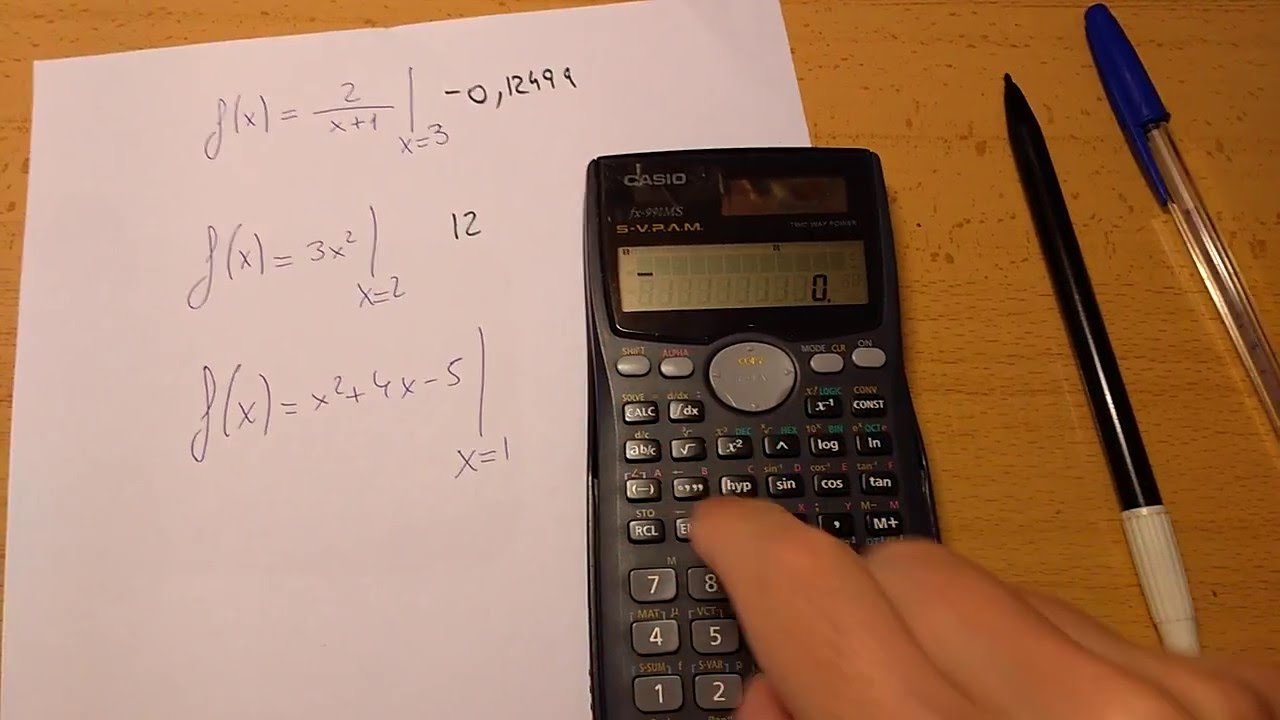 f(x) = 2/(x+1) | x=3 -0,12499
f(x) = 3x² | x=2 12
f(x) = x² + 4x - 5 | x=1
CASIO
fx-991MS
S-V.P.A.M.
TWO WAY POWER
0.
SHIFT ALPHA MODE CLR ON
SOLVE = d/dx : x! LOGIC CONV
CALC ∫dx x⁻¹ CONST
d/c ³√ x³ DEC ˣ√ HEX 10ˣ BIN eˣ OCT
ab/c √ x² ^ log ln
∠ A ← B C sin⁻¹ D cos⁻¹ E tan⁻¹ F
(-) °,,, hyp sin cos tan
STO ← X ; Y M- M
RCL , M+
M
7 8
MAT µ VCT
4 5
S-SUM f S-VAR p
1 2